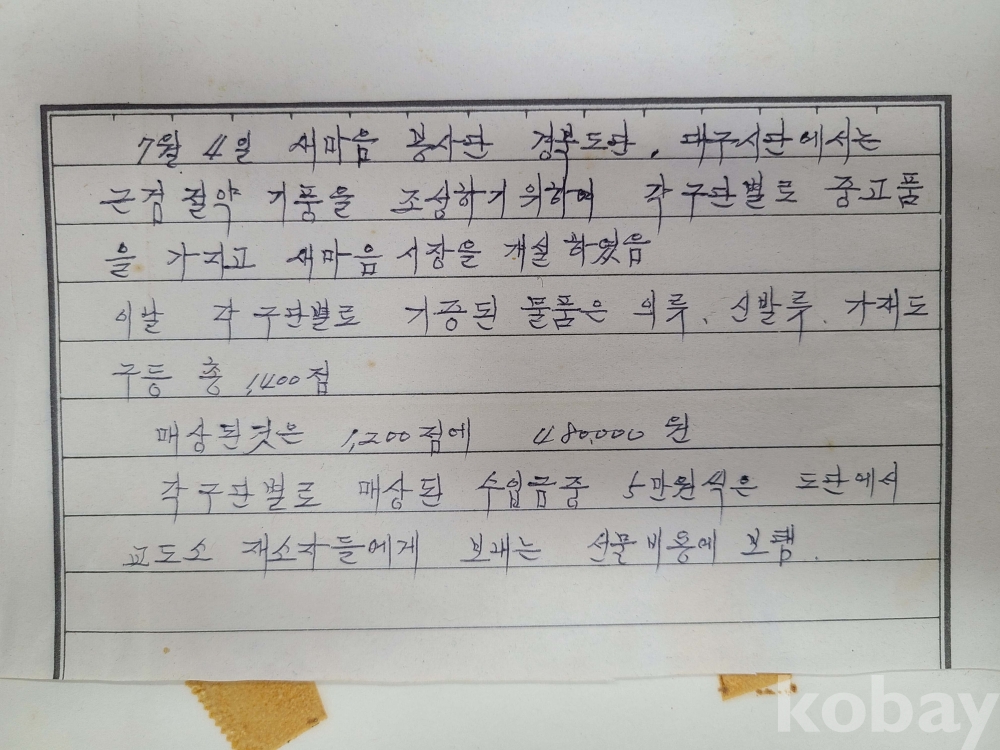 7월 4일 새마음 봉사단 경북도단, 대구시단에서는
근검 절약 기풍을 조성하기 위하여 각 구단별로 중고품
을 가지고 새마음 시장을 개설 하였음
이날 각 구단별로 기증된 물품은 의류, 신발류, 가재도
구등 총 1,400점
매상된것은 1,200점에 480,000원
각 구단별로 매상된 수입금중 5만원씩은 도단에서
교도소 재소자들에게 보내는 선물비용에 보탬.
kobay